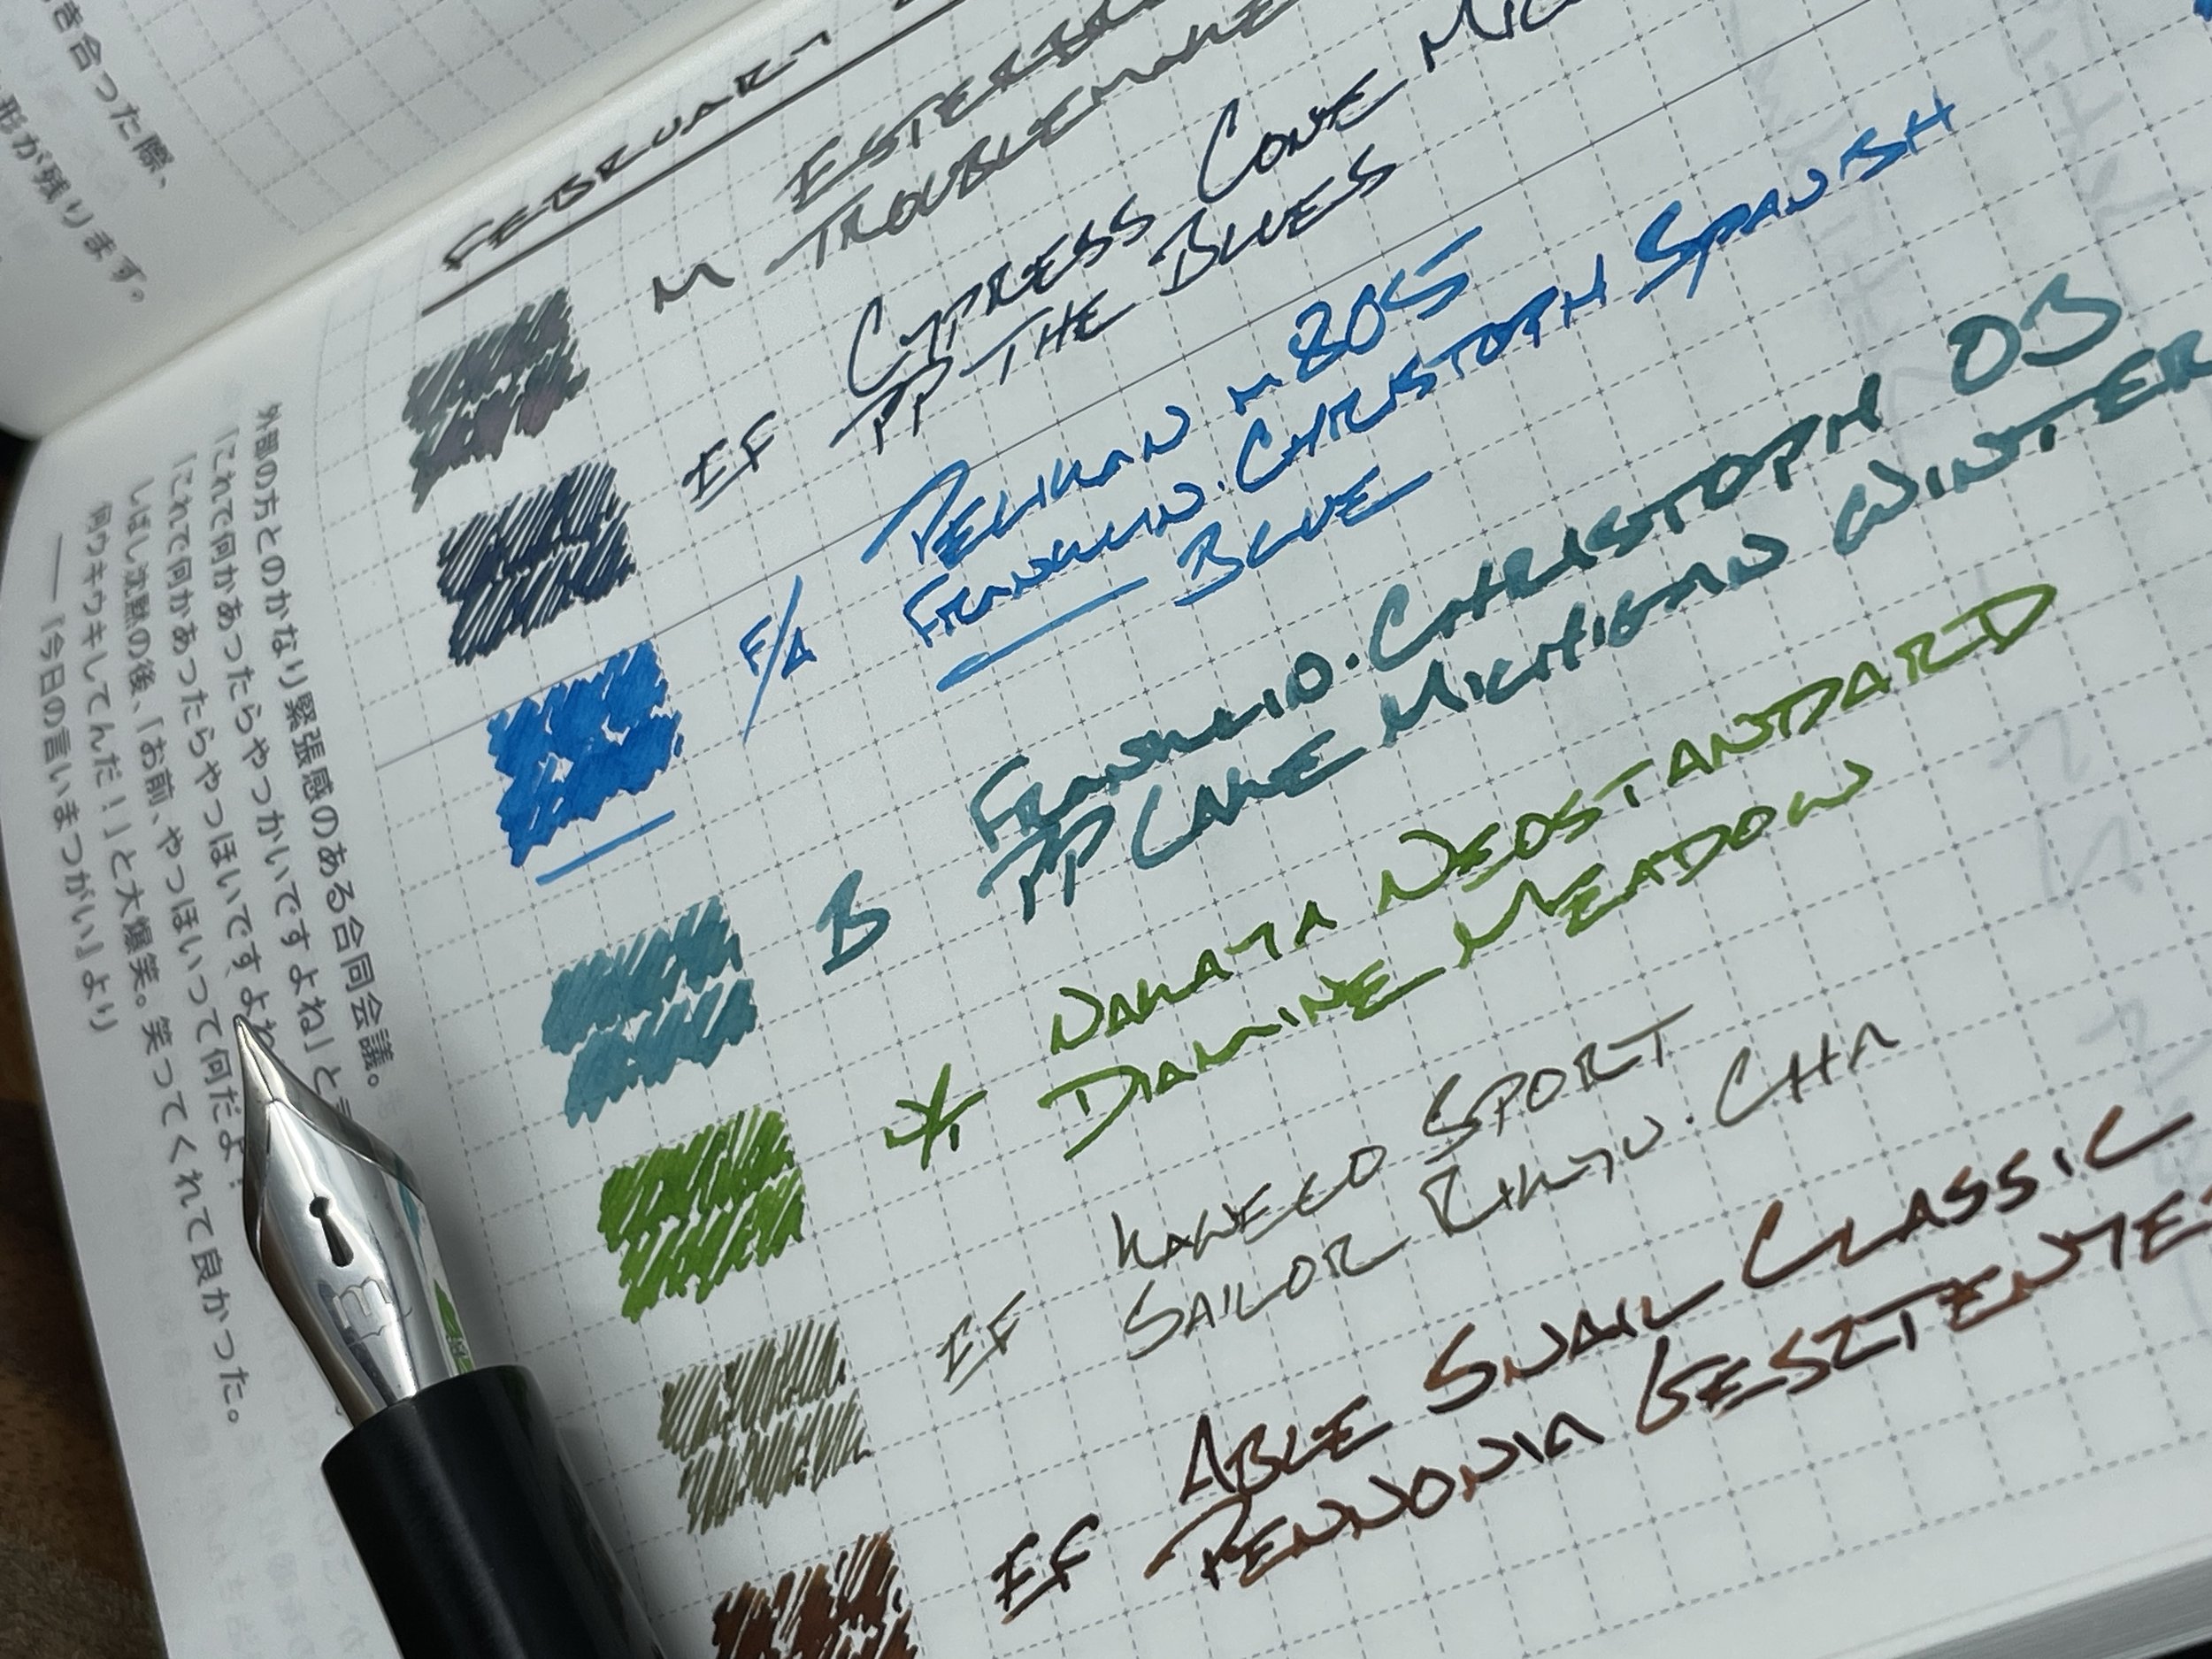 き合った際、
形が残ります。
FEBRUARY
M ESTERBR
TROUBLEMAKE
EF CYPRESS CONE MIC
PP THE BLUES
F/A PELIKAN M205
FRANKLIN·CHRISTOPH SPANISH
BLUE
B FRANKLIN·CHRISTOPH 03
PP LAKE MICHIGAN WINTER
NAKAYA NEOSTANDARD
DIAMINE MEADOW
EF KAWECO SPORT
SAILOR RIKYU·CHA
EF ABLE SNAIL CLASSIC
PENNONIA GESZTENYE
外部の方とのかなり緊張感のある合同会議。
「これで何かあったらやっかいですよね」と
「これで何かあったらやっほいです、よね
しばし沈黙の後、「お前、やっほいって何だよ!
何ウキウキしてんだ!」と大爆笑。笑ってくれて良かった。
――『今日の言いまつがい』より